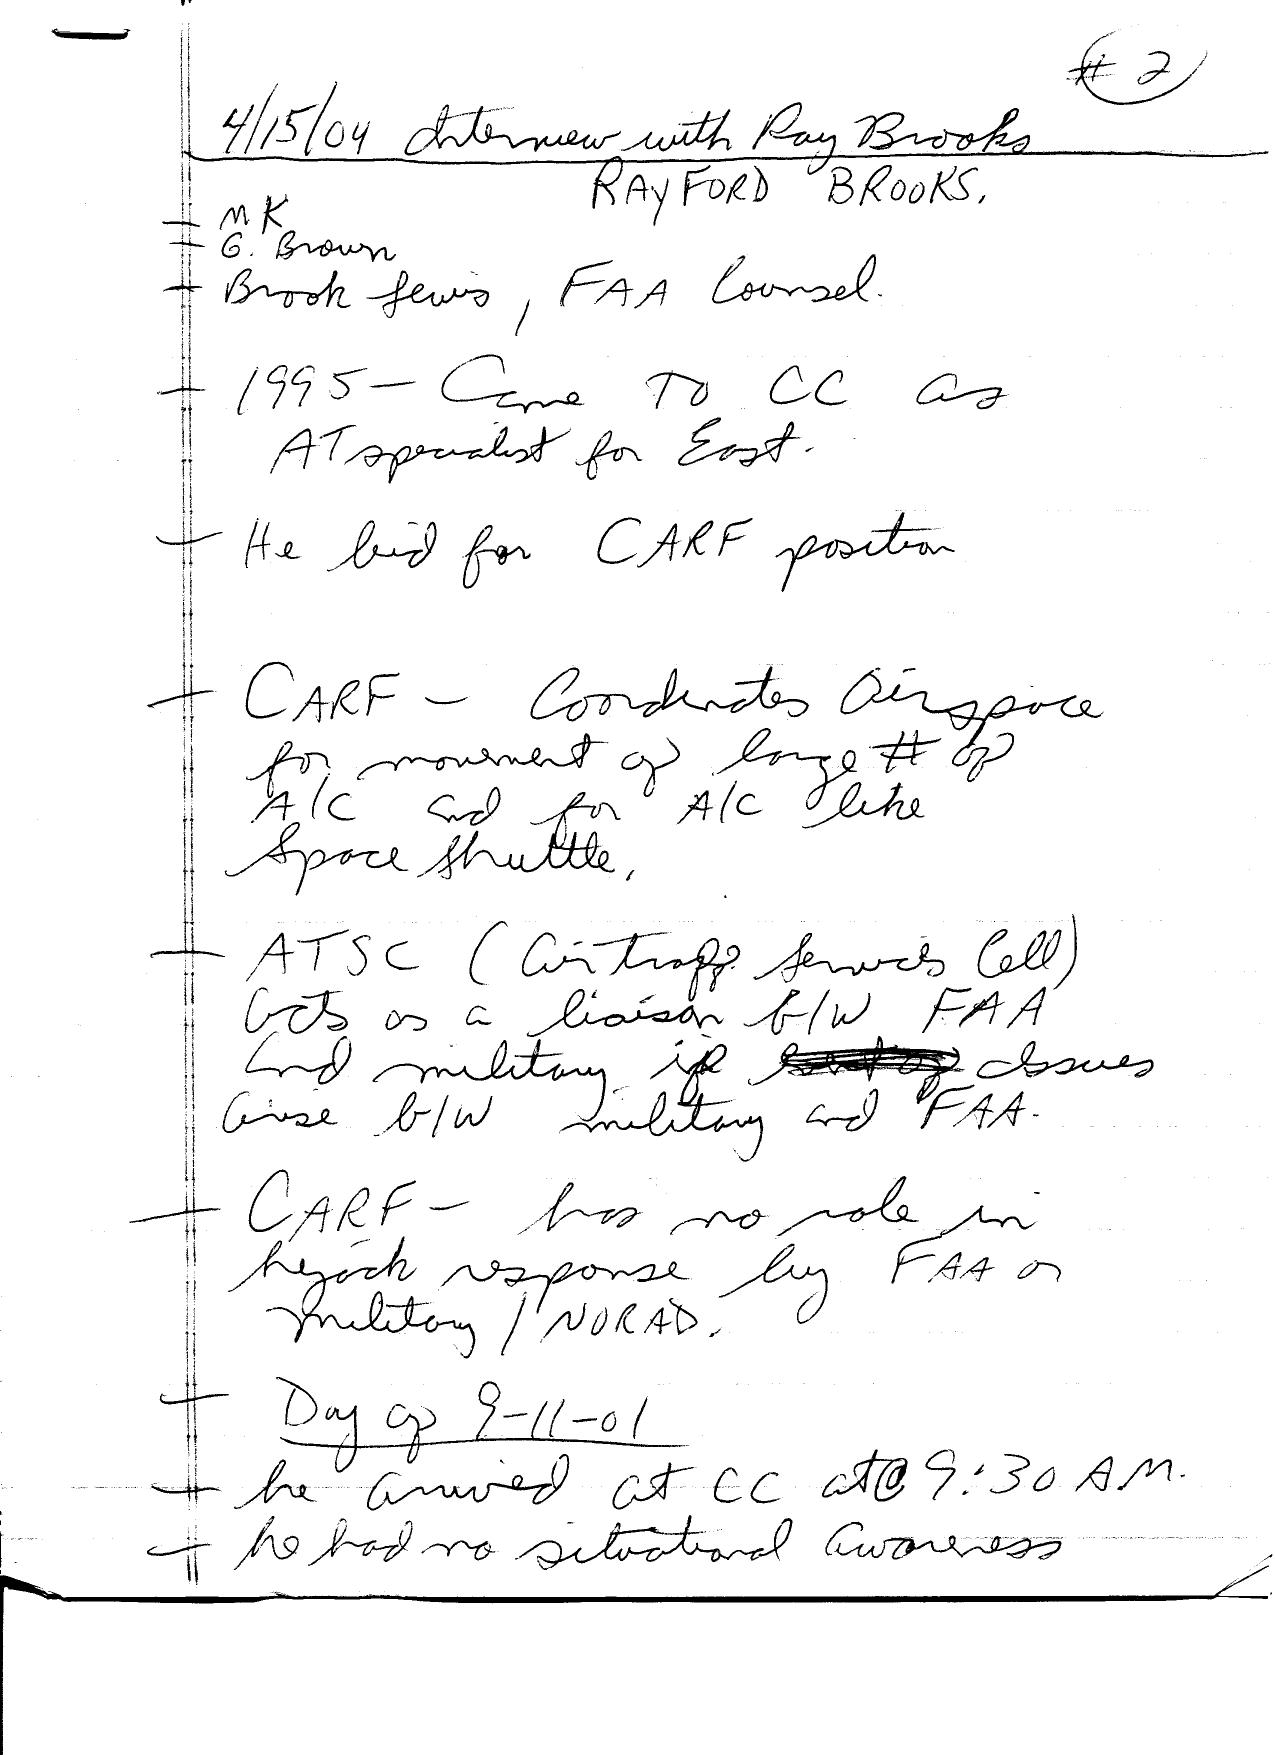 # 2
4/15/04 Interview with Ray Brooks
RAYFORD BROOKS.
- MK
- G. Brown
- Brook Lewis, FAA Counsel.
- 1995 - Came TO CC as
AT specialist for East.
- He bid for CARF position
- CARF - Coordinates Airspace
for movement of large # of
A/C and for A/C like
Space Shuttle.
- ATSC (Air traffic Services Cell)
acts as a liaison b/w FAA
and military if issues
arise b/w military and FAA.
- CARF - has no role in
hijack response by FAA or
military / NORAD.
- Day of 9-11-01
- he arrived at CC at @ 9:30 A.M.
- he had no situational awareness